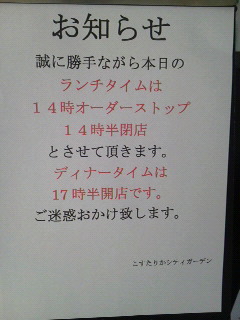 お知らせ
誠に勝手ながら本日の
ランチタイムは
１４時オーダーストップ
１４時半閉店
とさせて頂きます。
ディナータイムは
17時半開店です。
ご迷惑おかけ致します。
こすたりかシティガーデン